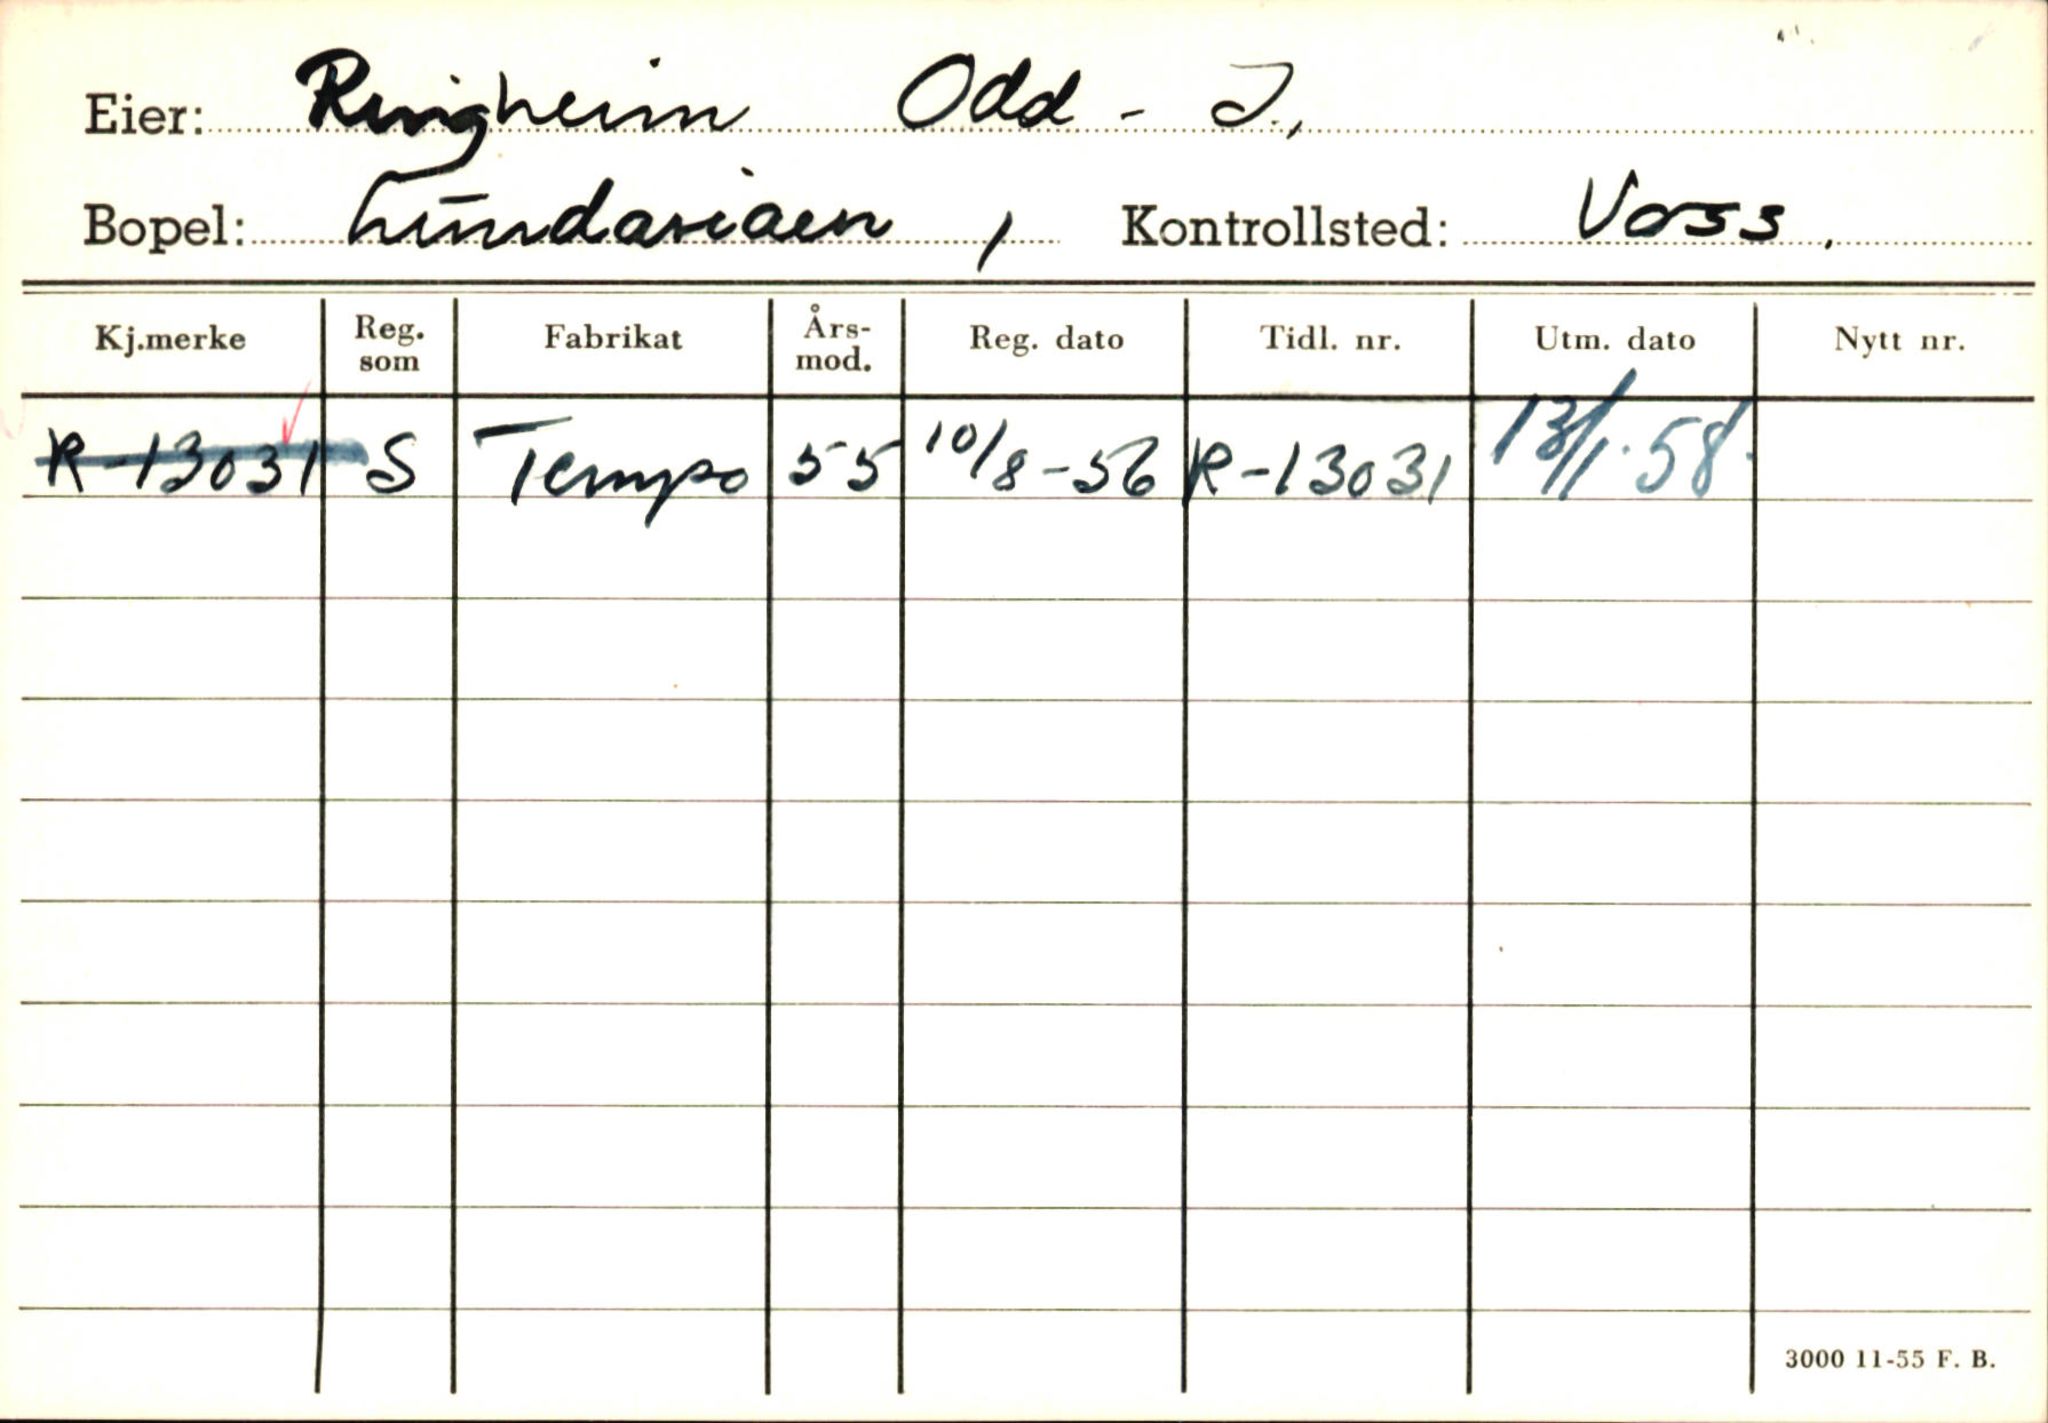 Eier: Ringheim Odd - J.,
Bopel: Lundarviaen, Kontrollsted: Voss.
Kj.merke Reg. som Fabrikat Års-mod. Reg. dato Tidl. nr. Utm. dato Nytt nr.
R-13031 S Tempo 55 10/8-56 R-13031 13/1.58.
3000 11-55 F. B.